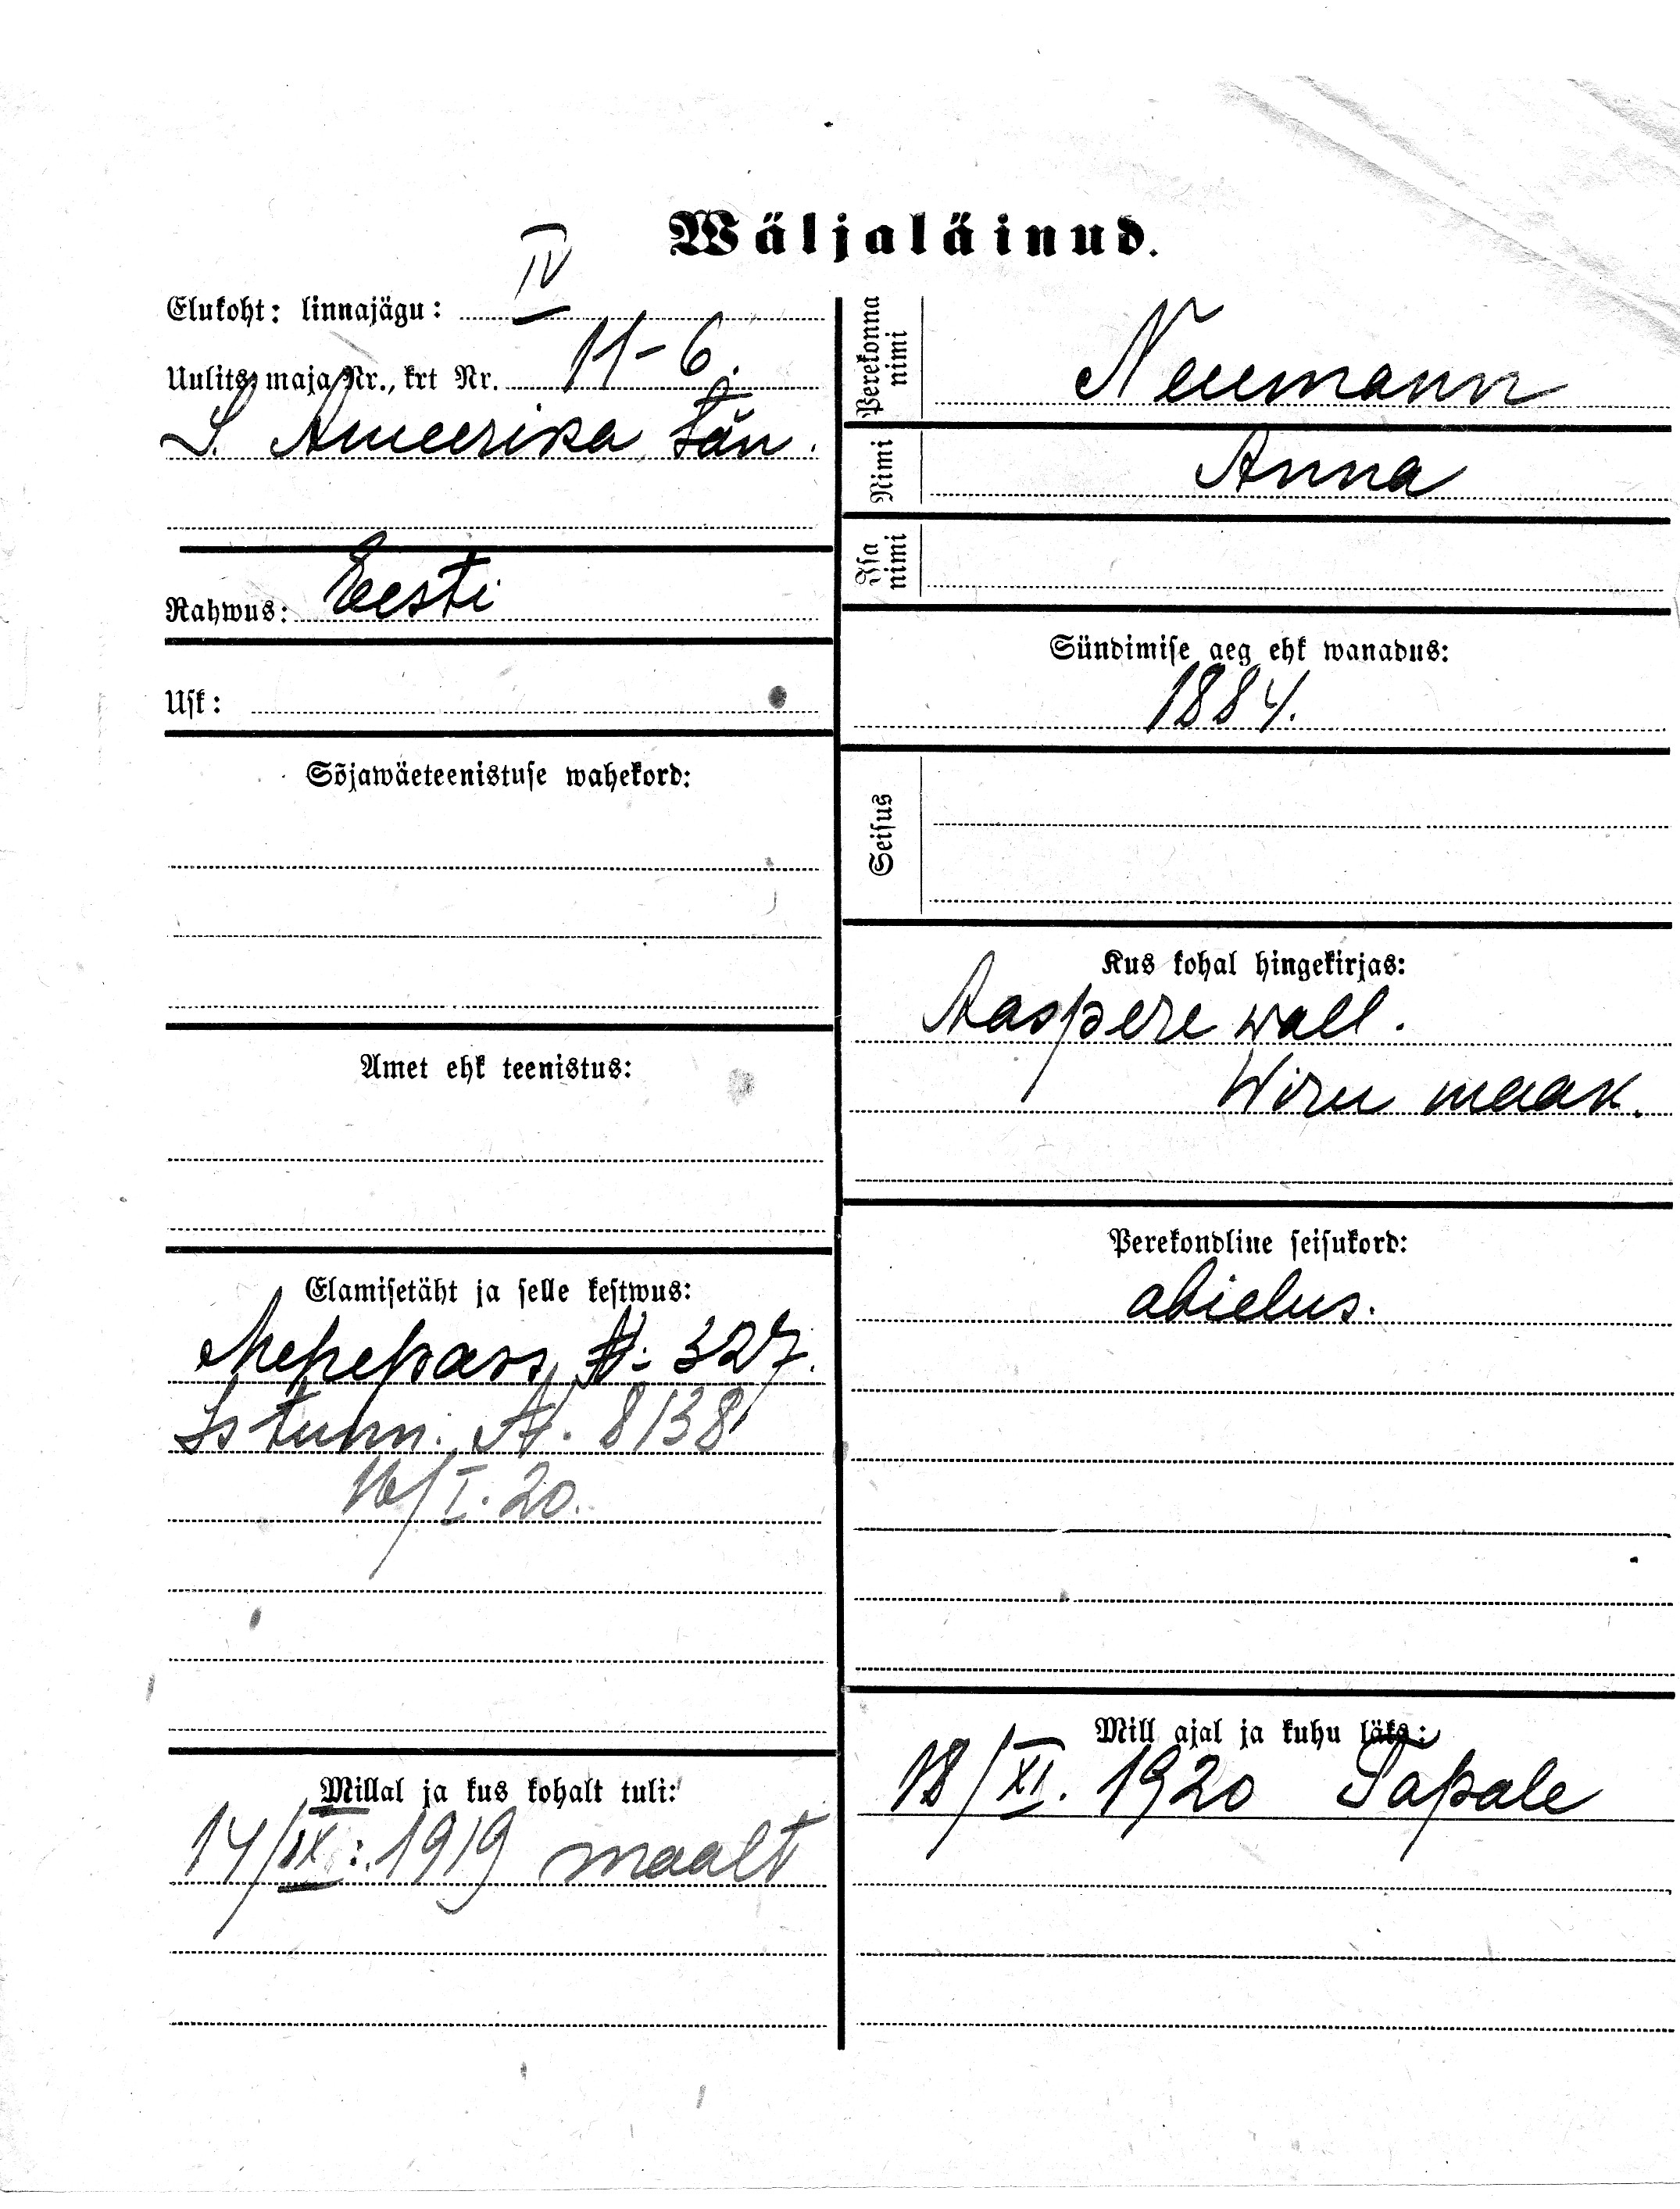 Wäljaläinud.
Elukoht: linnajägu: IV
Uulits, maja Nr., krt Nr. 11-6.
S. Ameerika tän.
Rahwus: Eesti
Usk:
Sõjawäeteenistuse wahekord:
Amet ehk teenistus:
Elamisetäht ja selle kestwus:
№: 327.
Is tunn. №. 8138
16/I. 20.
Millal ja kus kohalt tuli:
14/IX. 1919 maalt
Perekonna nimi Neumann
Nimi Anna
Isa nimi
Sündimise aeg ehk wanadus:
1884.
Seisus
Kus kohal hingekirjas:
Aaspere wall.
Wiru maak.
Perekondline seisukord:
abielus.
Mill ajal ja kuhu läks:
18/XI. 1920 Tapale